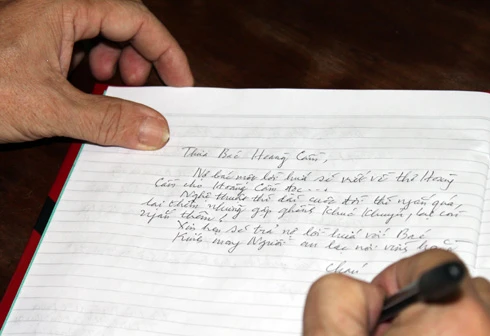 Thưa Bác Hoàng Cầm,
Nợ bác một lời hứa sẽ viết về thơ Hoàng
Cầm cho Hoàng Cầm đọc...
Nghệ thuật thì dài cuộc đời thì ngắn quá,
lại thêm nhưng gập ghềnh khúc khuỷu, lại còn
thêm!
Xin hẹn sẽ trả nợ lời hứa với Bác
Kính mong Người an lạc nơi vĩnh hằng